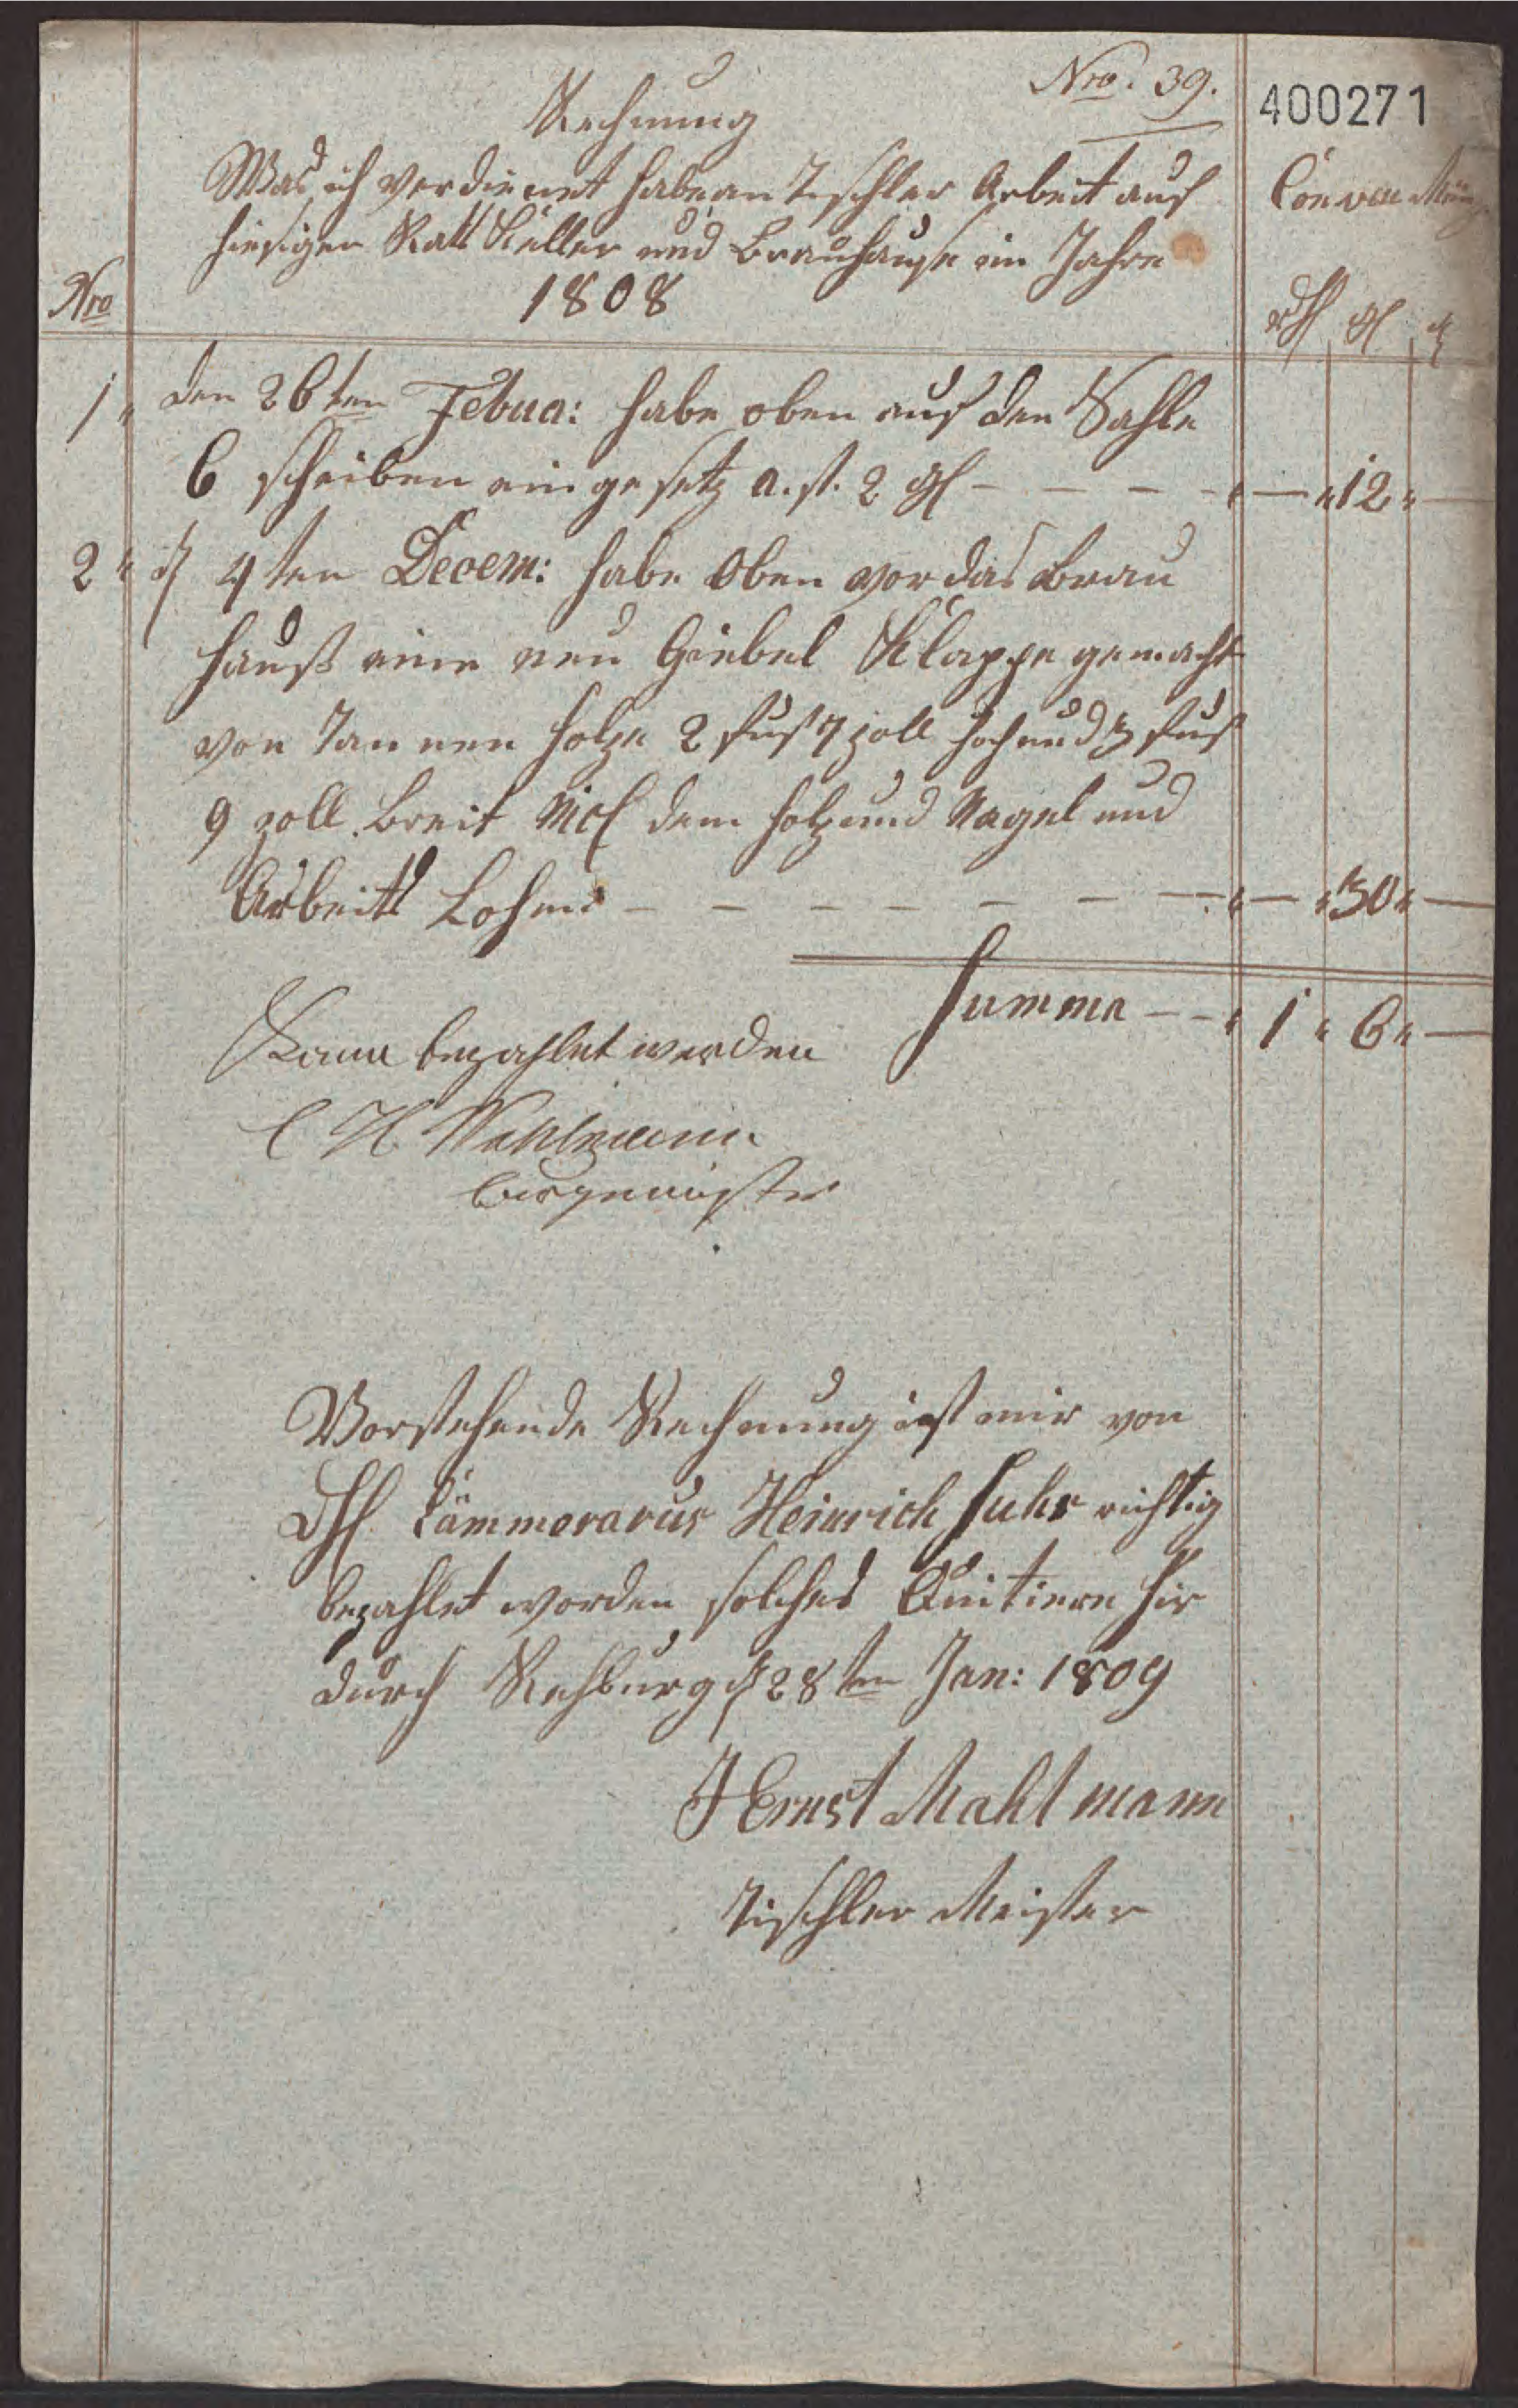 Nro. 39.
400271
Rechnung
Was ich verdienet habe an Tischler Arbeit auf
Conven Münz
hiesigen Ratskeller und Brauhause im Jahre
1808
Nro
rthl gl ₰
1. den 26ten Febua: habe oben auf den Sahle
6 scheiben ein gesetz a. st. 2 gl - - - - " — " 12 " —
2 " d 4ten Decem: habe Oben vor das Brau
hauß eine neu Giebel Klappe gemacht
von Tannen holze 2 fus 7 zoll hoch und 3 fus
9 zoll. Breit Nicl dem holz und Nagel und
Arbeits Lohne - - - - - - - - " — " 30 " —
Summa - - " 1 " 6 " —
Kann bezahlet werden
C H Mahlmann
Burgemeister
Vorstehende Rechnung ist mir von
Hl. Cämmerarus Heinrich Suhr richtig
bezahlet worden solches Quitiere hir
durch Rehburg d 28ten Jan: 1809
J Ernst Mahlmann
Tischler Meister